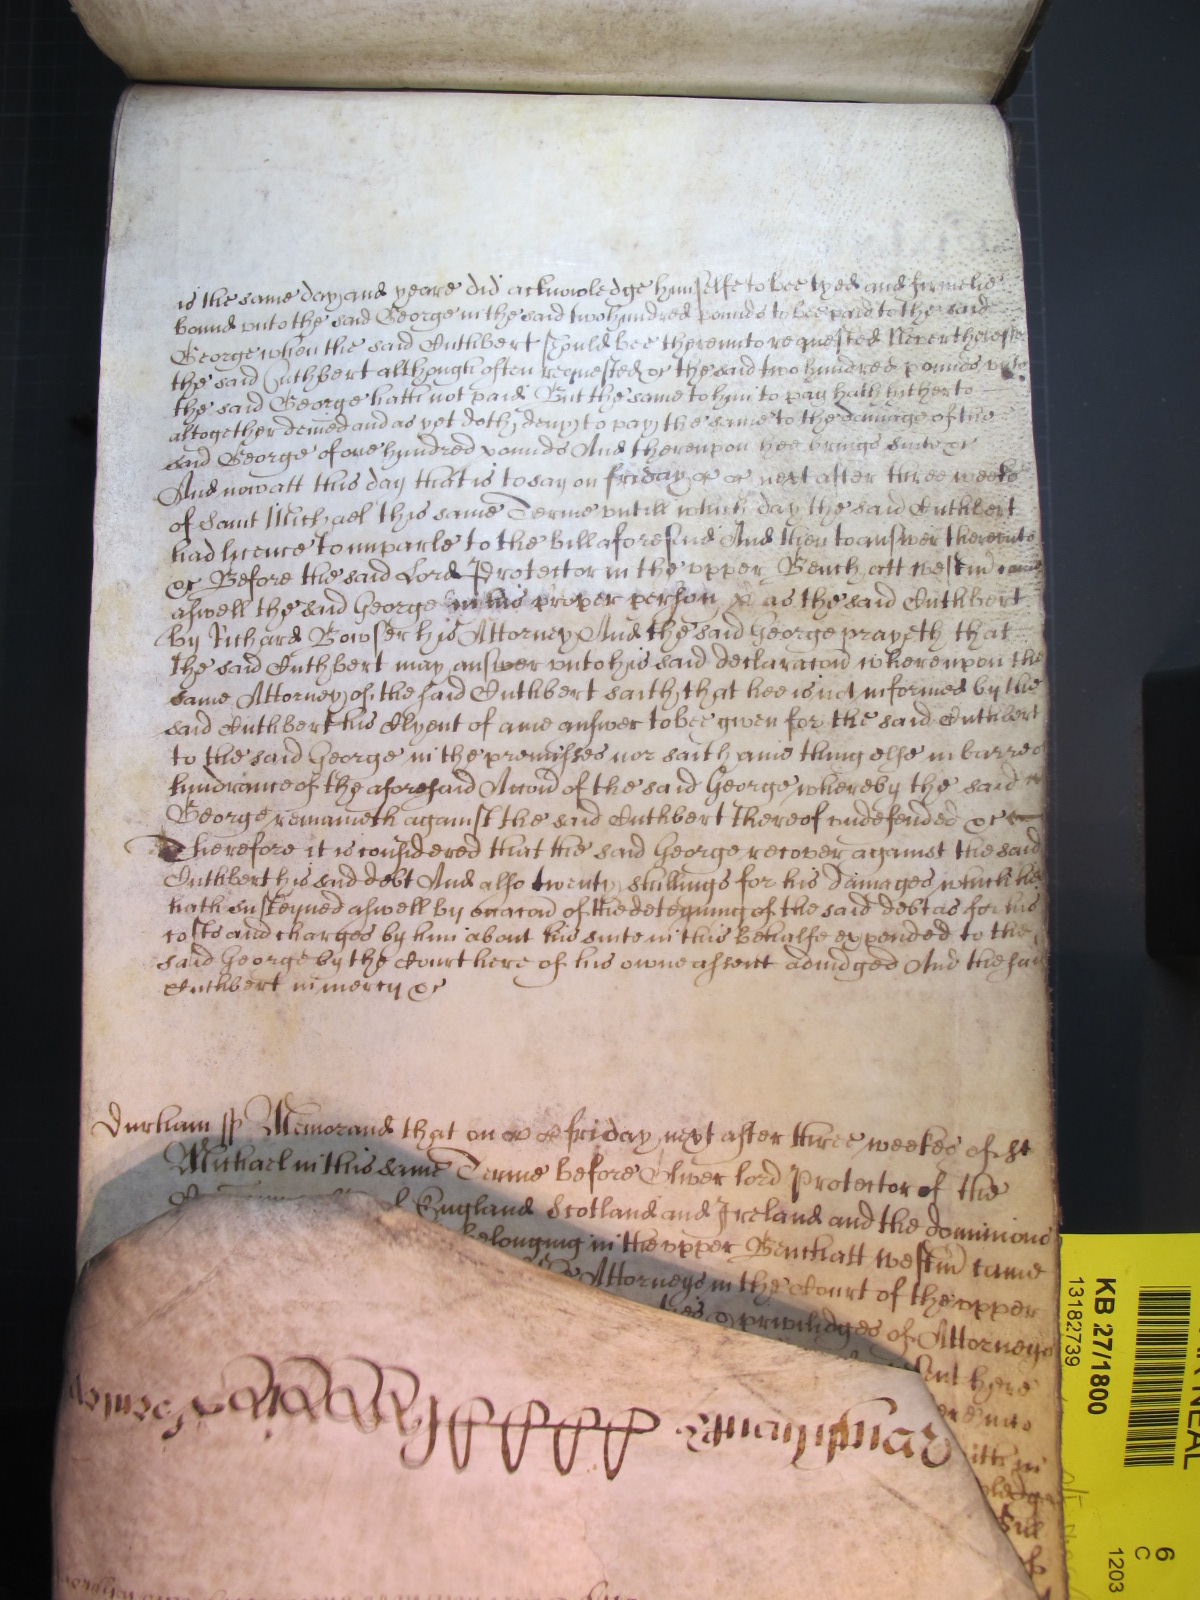 is the same day and yeare did acknowledge himselfe to bee tyed and firmelie
bound unto the said George in the said two hundred pounds to bee paid to the said
George when the said Cuthbert should bee thereunto requested Neverthelesse
the said Cuthbert although often requested &c the said two hundred pounds unto
the said George hath not paid But the same to him to pay hath hitherto
altogether denied and as yet doth deny to pay the same to the damage of the
said George of one hundred pounds And thereupon hee brings suite &c
And now att this day that is to say on friday &c &c next after three weeks
of Saint Michael this same Terme untill which day the said Cuthbert
had licence to imparle to the bill aforesaid And then to answer thereunto
&c Before the said Lord Protector in the upper Bench att Westmr came
aswell the said George in his proper person &c as the said Cuthbert
by Richard Bowser his Attorney And the said George prayeth that
the said Cuthbert may answer unto his said declaracon whereupon the
same Attorney of the said Cuthbert saith that hee is not informed by the
said Cuthbert his Clyent of anie answer to bee given for the said Cuthbert
to the said George in the premisses nor saith anie thing else in barre or
hindrance of the aforesaid Accon of the said George whereby the said
George remaineth against the said Cuthbert thereof undefended &c
Therefore it is considered that the said George recover against the said
Cuthbert his said debt And also twenty shillings for his damages which he
hath susteyned aswell by occacon of the deteyning of the said debt as for his
costs and charges by him about his suite in this behalfe expended to the
said George by the Court here of his owne assent adiudged And the said
Cuthbert in mercy &c
Durham ss Memorand that on &c &c friday next after three weekes of St
Michael in this same Terme before Oliver lord Protector of the
England Scotland and Ireland and the dominions
belonging in the upper Bench att Westmr came
Attorneys in the Court of the upper
priviledges of Attorneys
here
KB 27/1800
13182739
6
C
1203